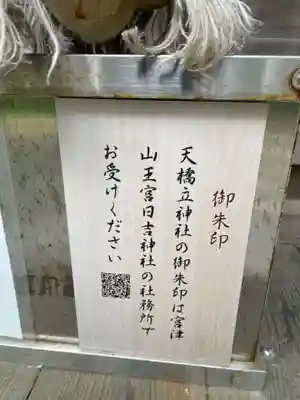 御朱印
天橋立神社の御朱印は宮津
山王宮日吉神社の社務所で
お受けください